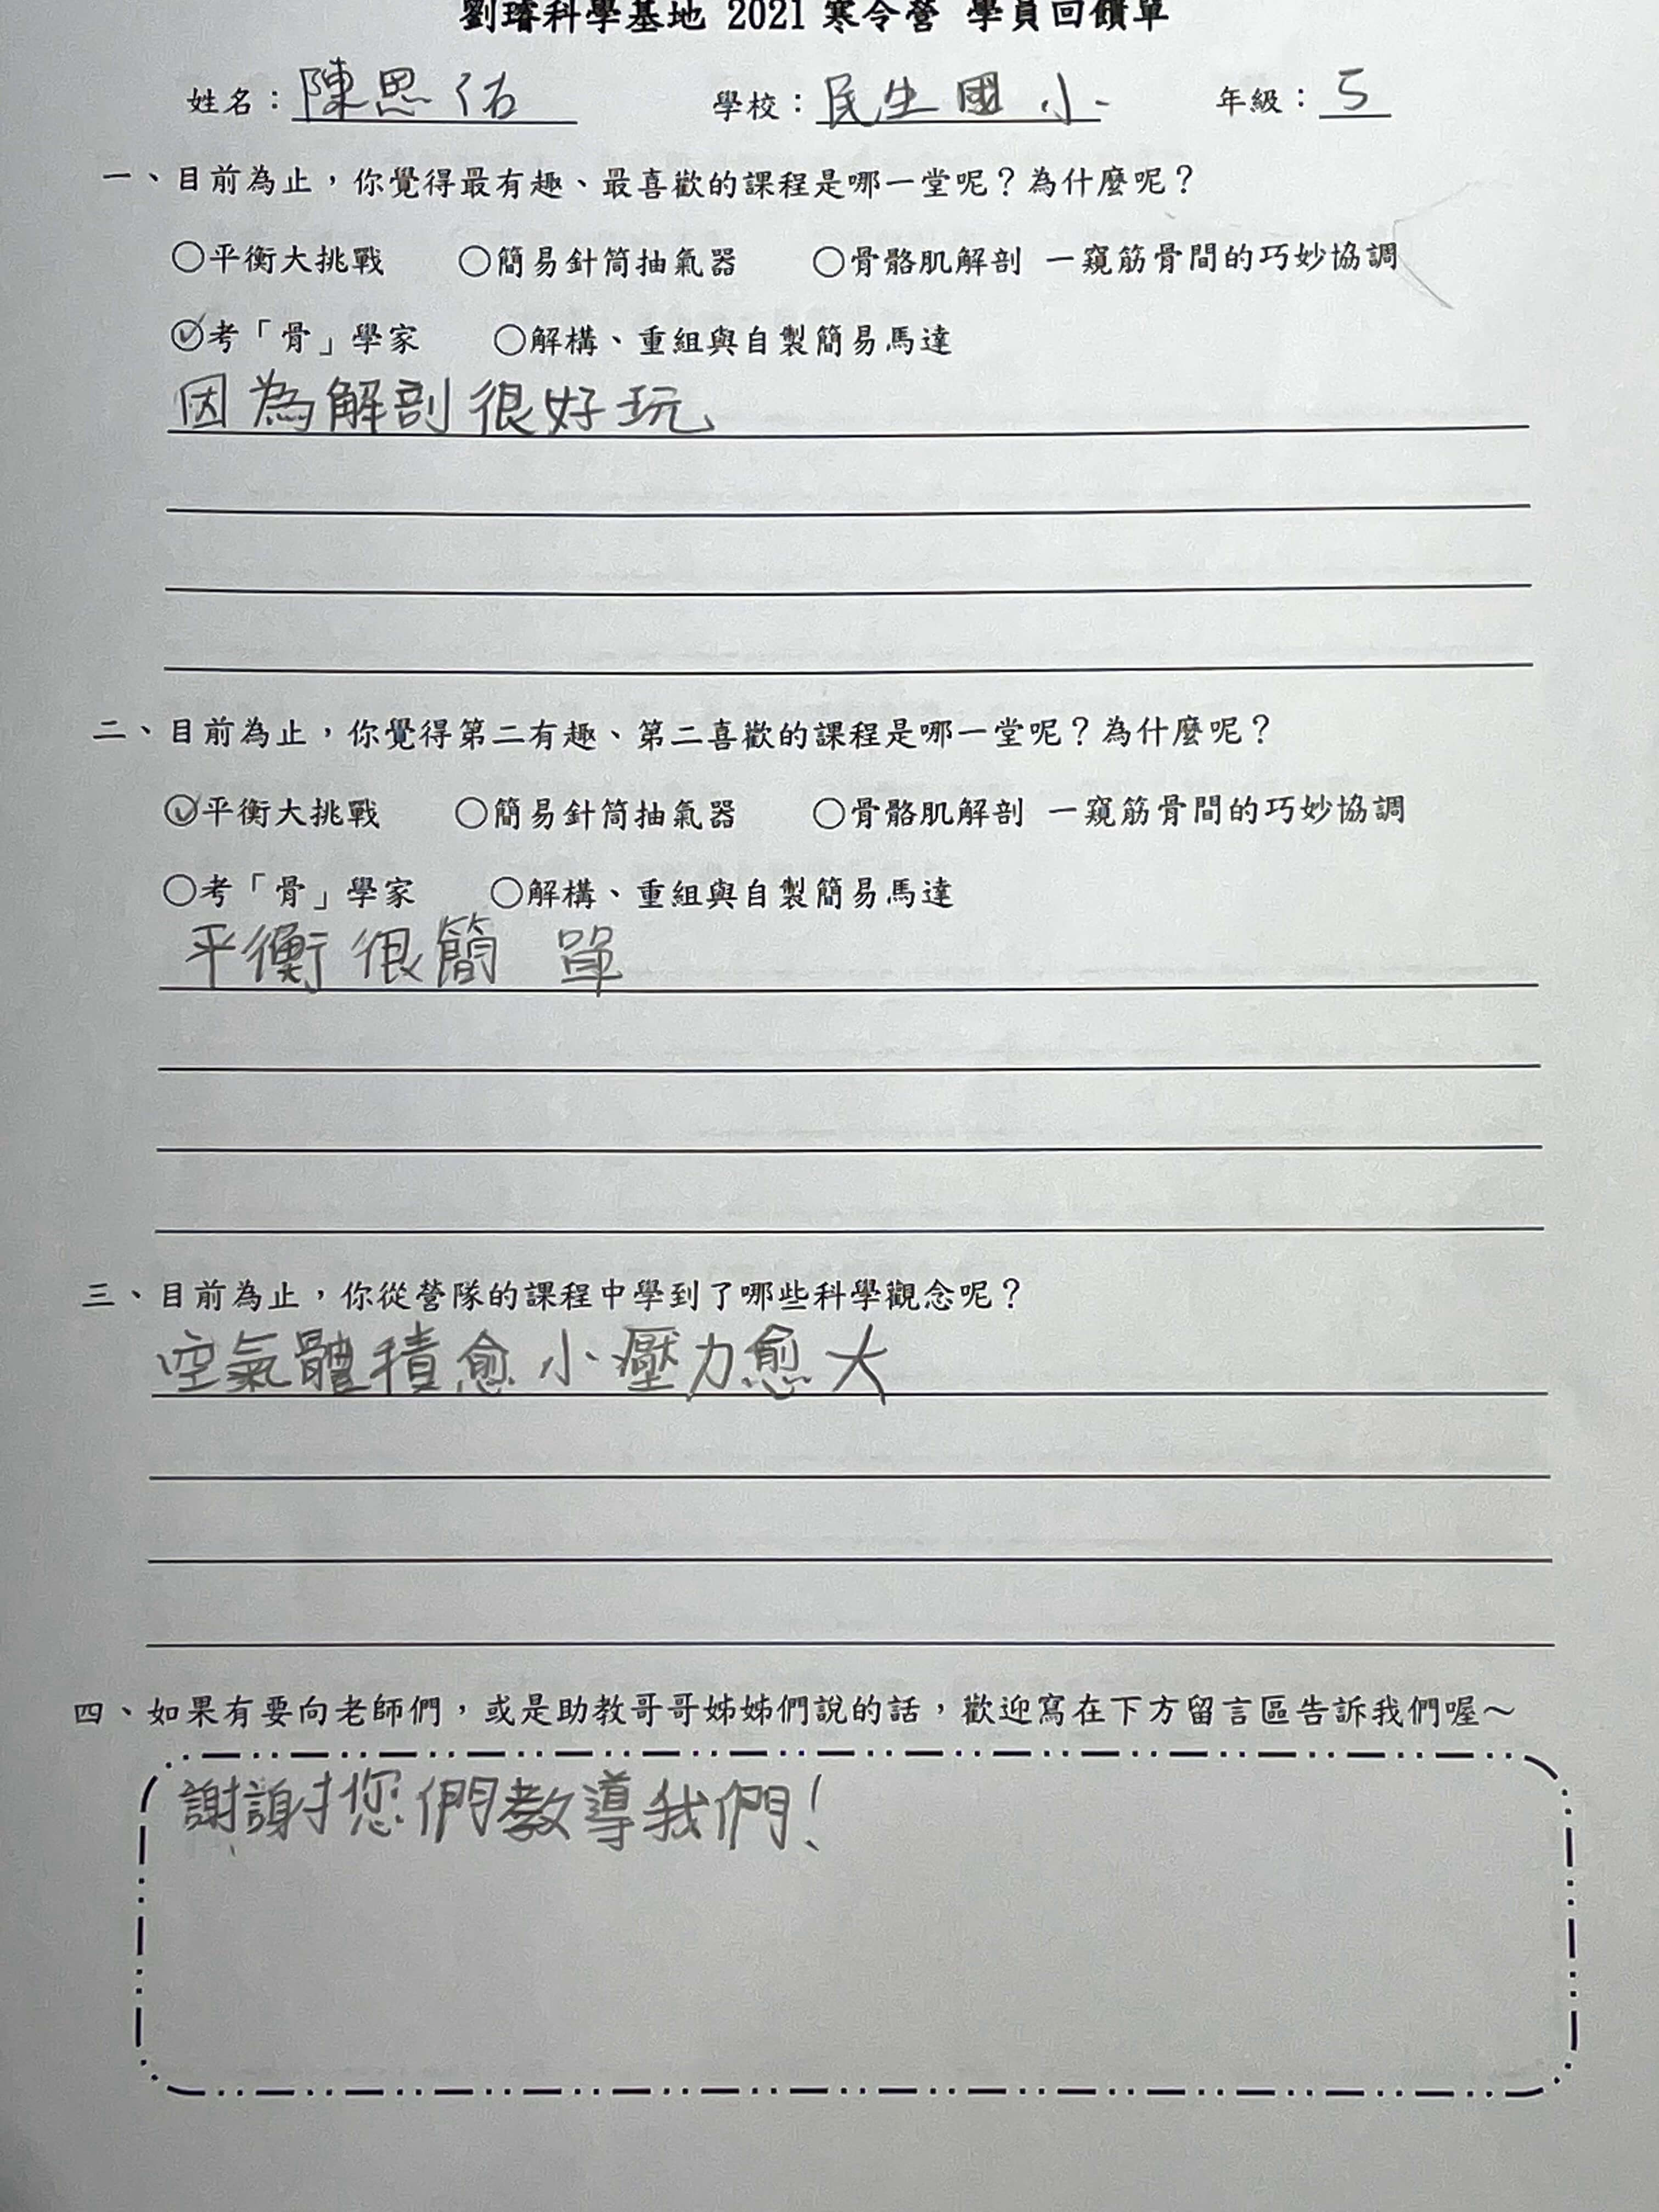 劉璿科學基地 2021 寒令營 學員回饋單
姓名：陳思佑 學校：民生國小 年級：5
一、目前為止，你覺得最有趣、最喜歡的課程是哪一堂呢？為什麼呢？
○平衡大挑戰 ○簡易針筒抽氣器 ○骨骼肌解剖 一窺筋骨間的巧妙協調
○考「骨」學家 ○解構、重組與自製簡易馬達
因為解剖很好玩
二、目前為止，你覺得第二有趣、第二喜歡的課程是哪一堂呢？為什麼呢？
○平衡大挑戰 ○簡易針筒抽氣器 ○骨骼肌解剖 一窺筋骨間的巧妙協調
○考「骨」學家 ○解構、重組與自製簡易馬達
平衡很簡單
三、目前為止，你從營隊的課程中學到了哪些科學觀念呢？
空氣體積愈小壓力愈大
四、如果有要向老師們，或是助教哥哥姊姊們說的話，歡迎寫在下方留言區告訴我們喔～
謝謝您們教導我們！